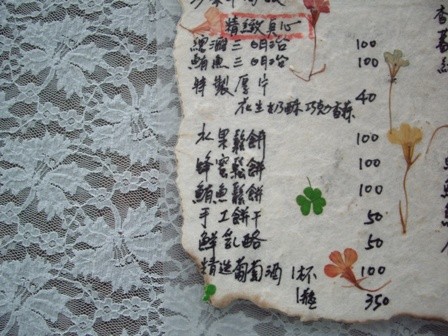 精緻點心
總匯三明治 100
鮪魚三明治 100
特製厚片
花生奶酥巧克力香蒜 40
水果鬆餅 100
蜂蜜鬆餅 100
鮪魚鬆餅 100
手工餅干 50
鮮乳酪 50
精選葡萄酒 1杯 100
1瓶 350